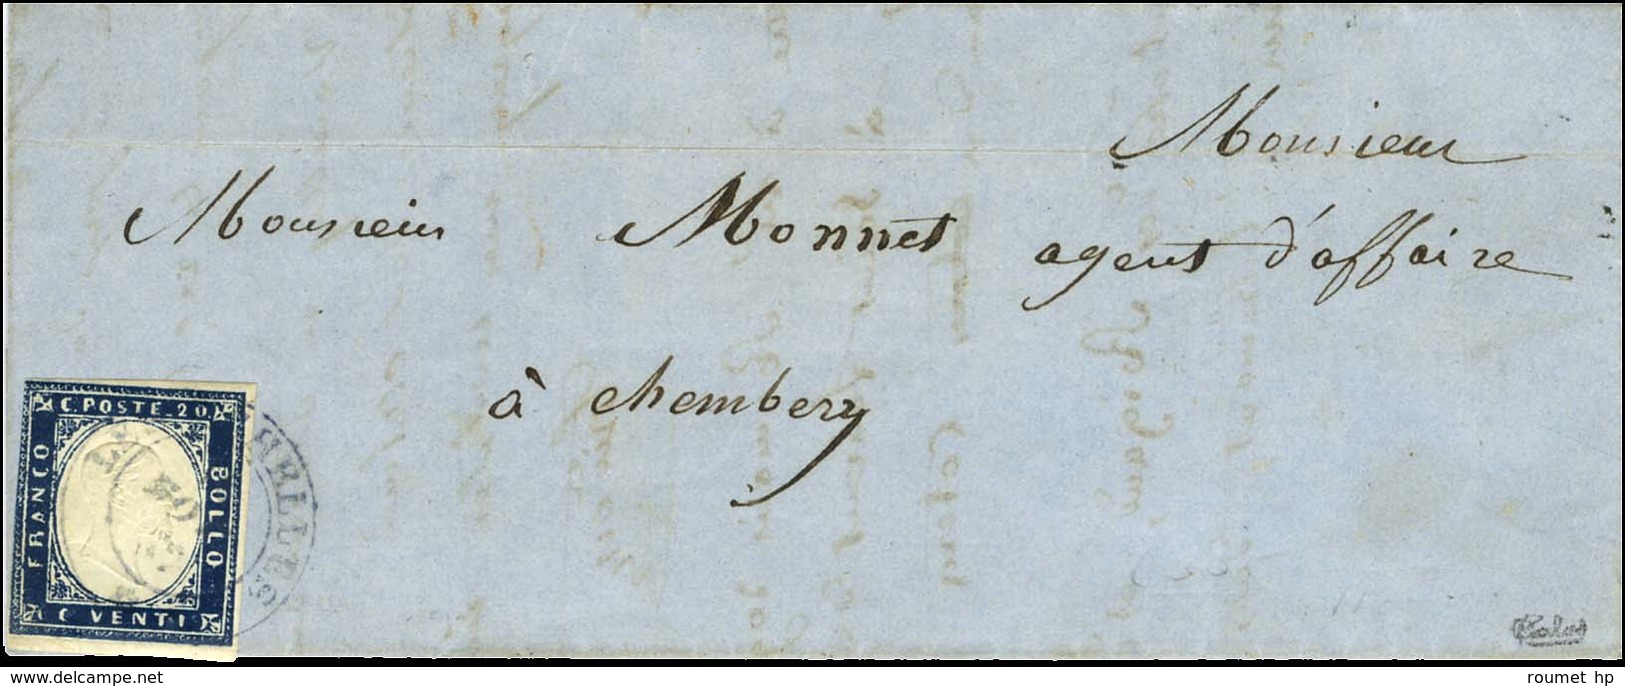 Monsieur
Monsieur Monnet agent d'affaire
à chembery
C. POSTE 20.
FRANCO
BOLLO
C VENTI
delcampe.net
roumet hp